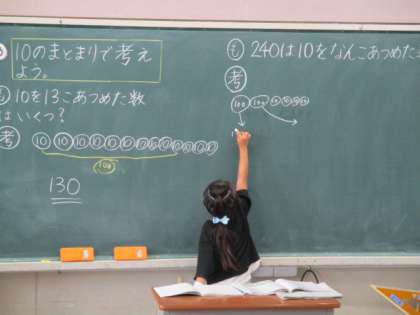 10のまとまりで考え
よう。
も 10を13こあつめた数
はいくつ?
考
10 10 10 10 10 10 10 10 10 10 10 10 10
100
130
も 240は10をなんこあつめた
考
100 100 10 10 10 10